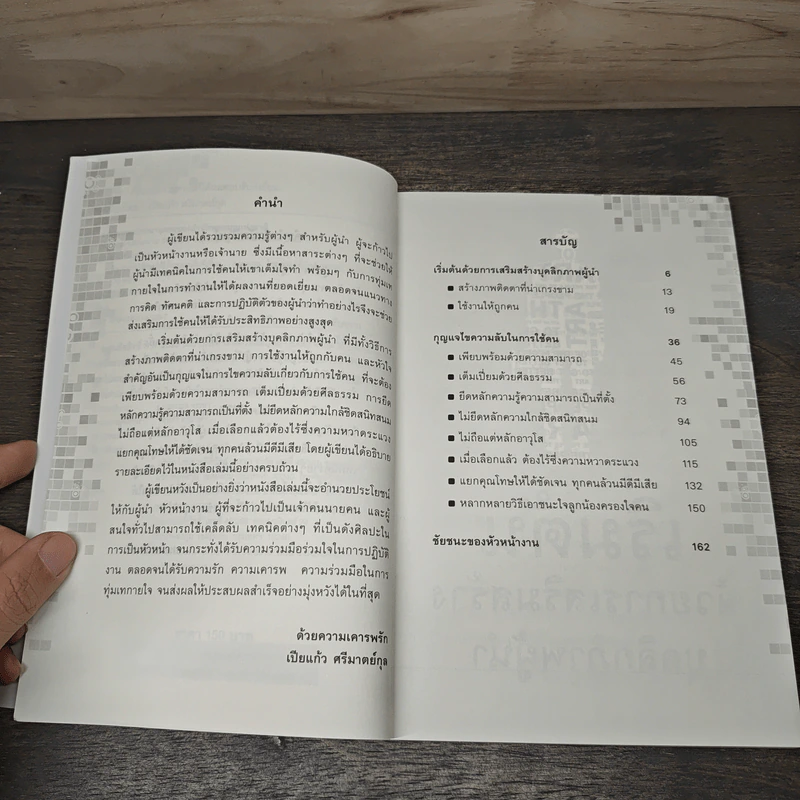 คำนำ
ผู้เขียนได้รวบรวมความรู้ต่างๆ สำหรับผู้นำ ผู้จะก้าวไป
เป็นหัวหน้างานหรือเจ้านาย ซึ่งมีเนื้อหาสาระต่างๆ ที่จะช่วยให้
ผู้นำมีเทคนิคในการใช้คนให้เขาเต็มใจทำ พร้อมๆ กับการทุ่มเท
กายใจในการทำงานให้ได้ผลงานที่ยอดเยี่ยม ตลอดจนแนวทาง
การคิด ทัศนคติ และการปฏิบัติตัวของผู้นำว่าทำอย่างไรจึงจะช่วย
ส่งเสริมการใช้คนให้ได้รับประสิทธิภาพอย่างสูงสุด
เริ่มต้นด้วยการเสริมสร้างบุคลิกภาพผู้นำ ที่มีทั้งวิธีการ
สร้างภาพติดตาที่น่าเกรงขาม การใช้งานให้ถูกกับคน และหัวใจ
สำคัญอันเป็นกุญแจในการไขความลับเกี่ยวกับการใช้คน ที่จะต้อง
เพียบพร้อมด้วยความสามารถ เต็มเปี่ยมด้วยศีลธรรม การยึด
หลักความรู้ความสามารถเป็นที่ตั้ง ไม่ยึดหลักความใกล้ชิดสนิทสนม
ไม่ถือแต่หลักอาวุโส เมื่อเลือกแล้วต้องไร้ซึ่งความหวาดระแวง
แยกคุณโทษให้ได้ชัดเจน ทุกคนล้วนมีดีมีเสีย โดยผู้เขียนได้อธิบาย
รายละเอียดไว้ในหนังสือเล่มนี้อย่างครบถ้วน
ผู้เขียนหวังเป็นอย่างยิ่งว่าหนังสือเล่มนี้จะอำนวยประโยชน์
ให้กับผู้นำ หัวหน้างาน ผู้ที่จะก้าวไปเป็นเจ้าคนนายคน และผู้
สนใจทั่วไปสามารถใช้เคล็ดลับ เทคนิคต่างๆ ที่เป็นดังศิลปะใน
การเป็นหัวหน้า จนกระทั่งได้รับความร่วมมือร่วมใจในการปฏิบัติ
งาน ตลอดจนได้รับความรัก ความเคารพ ความร่วมมือในการ
ทุ่มเทกายใจ จนส่งผลให้ประสบผลสำเร็จอย่างมุ่งหวังได้ในที่สุด
ด้วยความเคารพรัก
เปียแก้ว ศรีมาตย์กุล
สารบัญ
เริ่มต้นด้วยการเสริมสร้างบุคลิกภาพผู้นำ 6
■ สร้างภาพติดตาที่น่าเกรงขาม 13
■ ใช้งานให้ถูกคน 19
กุญแจไขความลับในการใช้คน 36
■ เพียบพร้อมด้วยความสามารถ 45
■ เต็มเปี่ยมด้วยศีลธรรม 56
■ ยึดหลักความรู้ความสามารถเป็นที่ตั้ง 73
■ ไม่ยึดหลักความใกล้ชิดสนิทสนม 94
■ ไม่ถือแต่หลักอาวุโส 105
■ เมื่อเลือกแล้ว ต้องไร้ซึ่งความหวาดระแวง 115
■ แยกคุณโทษให้ได้ชัดเจน ทุกคนล้วนมีดีมีเสีย 132
■ หลากหลายวิธีเอาชนะใจลูกน้องครองใจคน 150
ชัยชนะของหัวหน้างาน 162